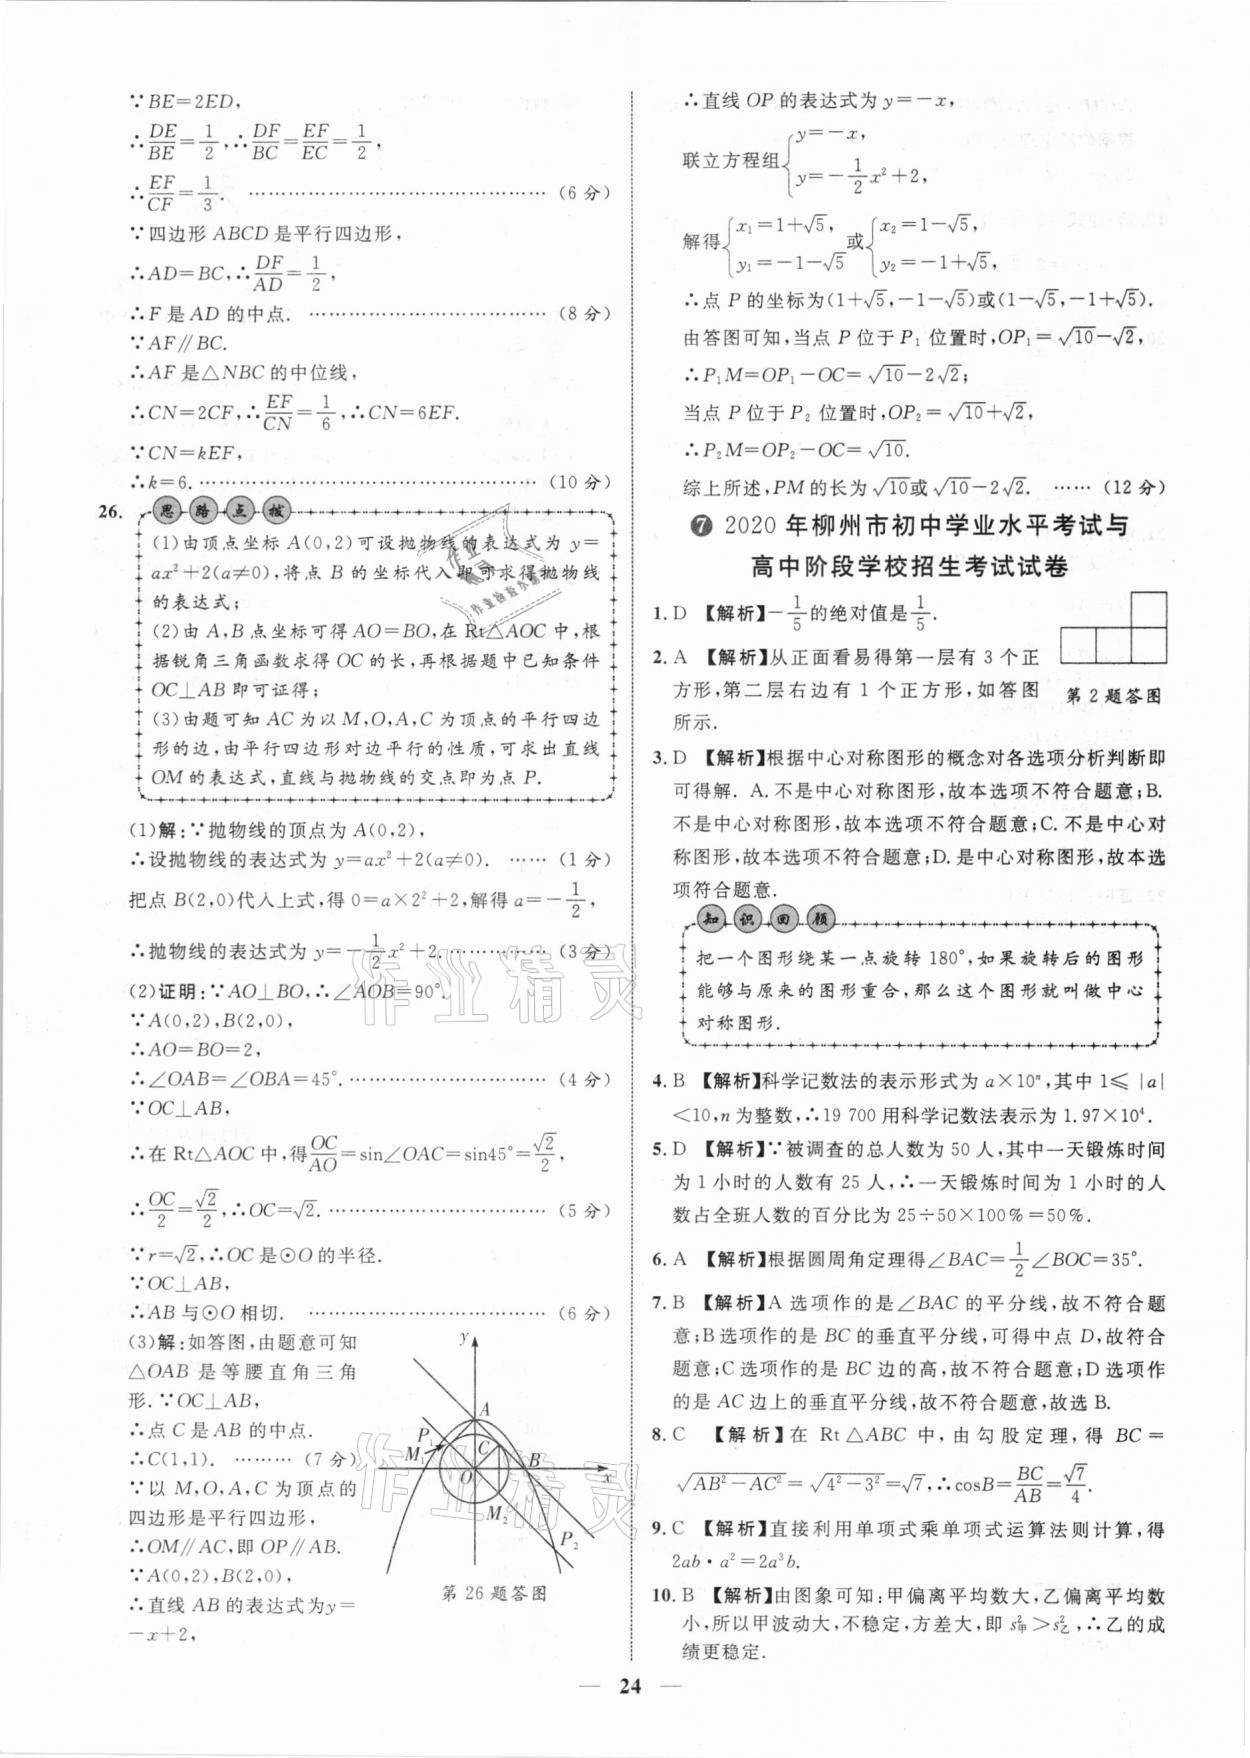 ∵BE=2ED,
∴DE/BE=1/2,∴DF/BC=EF/EC=1/2,
∴EF/CF=1/3. …………………………………… (6 分)
∵四边形 ABCD 是平行四边形,
∴AD=BC,∴DF/AD=1/2,
∴F 是 AD 的中点. …………………………… (8 分)
∵AF∥BC.
∴AF 是△NBC 的中位线,
∴CN=2CF,∴EF/CN=1/6,∴CN=6EF.
∵CN=kEF,
∴k=6. ………………………………………… (10 分)
26. 思路点拨
(1)由顶点坐标 A(0,2)可设抛物线的表达式为 y=
ax²+2(a≠0),将点 B 的坐标代入即可求得抛物线
的表达式;
(2)由 A,B 点坐标可得 AO=BO,在 Rt△AOC 中,根
据锐角三角函数求得 OC 的长,再根据题中已知条件
OC⊥AB 即可证得;
(3)由题可知 AC 为以 M,O,A,C 为顶点的平行四边
形的边,由平行四边形对边平行的性质,可求出直线
OM 的表达式,直线与抛物线的交点即为点 P.
(1)解:∵抛物线的顶点为 A(0,2),
∴设抛物线的表达式为 y=ax²+2(a≠0). …… (1 分)
把点 B(2,0)代入上式,得 0=a×2²+2,解得 a=-1/2,
∴抛物线的表达式为 y=-1/2x²+2. …………… (3 分)
(2)证明:∵AO⊥BO,∴∠AOB=90°.
∵A(0,2),B(2,0),
∴AO=BO=2,
∴∠OAB=∠OBA=45°. ……………………… (4 分)
∵OC⊥AB,
∴在 Rt△AOC 中,得OC/AO=sin∠OAC=sin45°=√2/2,
∴OC/2=√2/2,∴OC=√2. ………………………… (5 分)
∵r=√2,∴OC 是⊙O 的半径.
∵OC⊥AB,
∴AB 与⊙O 相切. …………………………… (6 分)
(3)解:如答图,由题意可知
△OAB 是等腰直角三角
形.∵OC⊥AB,
∴点 C 是 AB 的中点.
∴C(1,1). ……… (7 分)
∵以 M,O,A,C 为顶点的
四边形是平行四边形,
∴OM∥AC,即 OP∥AB.
∵A(0,2),B(2,0),
∴直线 AB 的表达式为y=
-x+2,
y
A
P₁
C
M₁
B
O
x
M₂
P₂
第 26 题答图
∴直线 OP 的表达式为 y=-x,
联立方程组{y=-x,
y=-1/2x²+2,
解得{x₁=1+√5, y₁=-1-√5 或{x₂=1-√5, y₂=-1+√5,
∴点 P 的坐标为(1+√5,-1-√5)或(1-√5,-1+√5).
由答图可知,当点 P 位于 P₁ 位置时,OP₁=√10-√2,
∴P₁M=OP₁-OC=√10-2√2;
当点 P 位于 P₂ 位置时,OP₂=√10+√2,
∴P₂M=OP₂-OC=√10.
综上所述,PM 的长为√10或√10-2√2. …… (12 分)
❼ 2020 年柳州市初中学业水平考试与
高中阶段学校招生考试试卷
1. D 【解析】-1/5的绝对值是1/5.
2. A 【解析】从正面看易得第一层有 3 个正
方形,第二层右边有 1 个正方形,如答图
所示.
第 2 题答图
3. D 【解析】根据中心对称图形的概念对各选项分析判断即
可得解. A. 不是中心对称图形,故本选项不符合题意;B.
不是中心对称图形,故本选项不符合题意;C. 不是中心对
称图形,故本选项不符合题意;D. 是中心对称图形,故本选
项符合题意.
知识回顾
把一个图形绕某一点旋转 180°,如果旋转后的图形
能够与原来的图形重合,那么这个图形就叫做中心
对称图形.
4. B 【解析】科学记数法的表示形式为 a×10ⁿ,其中 1≤|a|
<10,n 为整数,∴19 700 用科学记数法表示为 1.97×10⁴.
5. D 【解析】∵被调查的总人数为 50 人,其中一天锻炼时间
为 1 小时的人数有 25 人,∴一天锻炼时间为 1 小时的人
数占全班人数的百分比为 25÷50×100%=50%.
6. A 【解析】根据圆周角定理得∠BAC=1/2∠BOC=35°.
7. B 【解析】A 选项作的是∠BAC 的平分线,故不符合题
意;B 选项作的是 BC 的垂直平分线,可得中点 D,故符合
题意;C 选项作的是 BC 边的高,故不符合题意;D 选项作
的是 AC 边上的垂直平分线,故不符合题意,故选 B.
8. C 【解析】在 Rt△ABC 中,由勾股定理,得 BC=
√(AB²-AC²)=√(4²-3²)=√7,∴cosB=BC/AB=√7/4.
9. C 【解析】直接利用单项式乘单项式运算法则计算,得
2ab·a²=2a³b.
10. B 【解析】由图象可知:甲偏离平均数大,乙偏离平均数
小,所以甲波动大,不稳定,方差大,即 s²甲>s²乙,∴乙的成
绩更稳定.
作业精灵
作业精灵
— 24 —